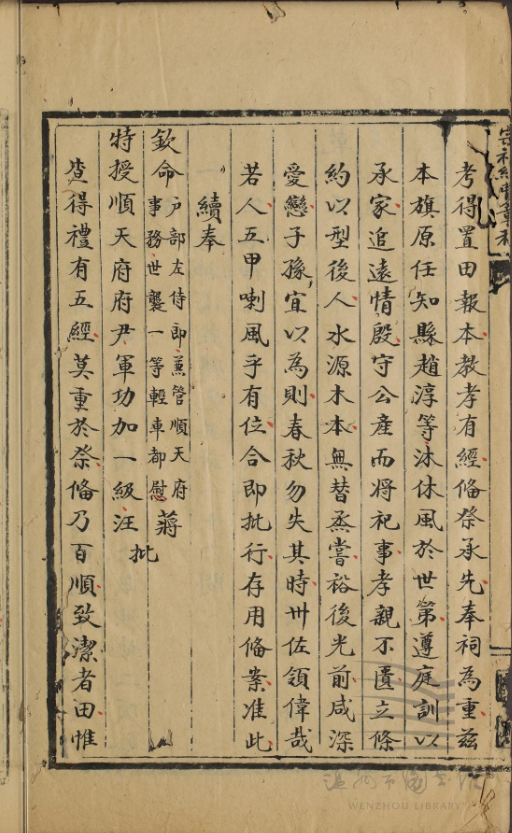 考得置田報本教孝有經修祭承先奉祠為重茲
本旗原任知縣趙淳等沐休風於世第遵庭訓以
承家追遠情殷守公產而將祀事孝親不匱立條
約以型後人水源木本無替烝嘗裕後光前咸深
愛戀子孫宜以為則春秋勿失其時卅佐領偉哉
若人五甲喇風乎有位合即批行存用修案准此
續奉
欽命戶部左侍郎蕭管順天府
事務世襲一等輕車都慰蔣
特授順天府府尹軍功加一級汪
批
查得禮有五經莫重於祭修乃百順致潔者田惟
WENZHOU LIBRARY